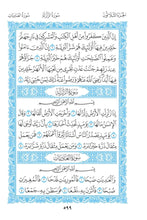 الجزء الثلاثون سورة الزلزلة سورة العاديات
إِنَّ ٱلَّذِينَ كَفَرُوا۟ مِنْ أَهْلِ ٱلْكِتَٰبِ وَٱلْمُشْرِكِينَ فِى نَارِ جَهَنَّمَ
خَٰلِدِينَ فِيهَآ أُو۟لَٰٓئِكَ هُمْ شَرُّ ٱلْبَرِيَّةِ ٦ إِنَّ ٱلَّذِينَ ءَامَنُوا۟
وَعَمِلُوا۟ ٱلصَّٰلِحَٰتِ أُو۟لَٰٓئِكَ هُمْ خَيْرُ ٱلْبَرِيَّةِ ٧ جَزَآؤُهُمْ
عِندَ رَبِّهِمْ جَنَّٰتُ عَدْنٍ تَجْرِى مِن تَحْتِهَا ٱلْأَنْهَٰرُ خَٰلِدِينَ فِيهَآ
أَبَدًا رَّضِىَ ٱللَّهُ عَنْهُمْ وَرَضُوا۟ عَنْهُ ذَٰلِكَ لِمَنْ خَشِىَ رَبَّهُۥ ٨
سورة الزلزلة
بِسْمِ ٱللَّهِ ٱلرَّحْمَٰنِ ٱلرَّحِيمِ
إِذَا زُلْزِلَتِ ٱلْأَرْضُ زِلْزَالَهَا ١ وَأَخْرَجَتِ ٱلْأَرْضُ أَثْقَالَهَا
٢ وَقَالَ ٱلْإِنسَٰنُ مَا لَهَا ٣ يَوْمَئِذٍ تُحَدِّثُ أَخْبَارَهَا ٤ بِأَنَّ رَبَّكَ أَوْحَىٰ لَهَا
٥ يَوْمَئِذٍ يَصْدُرُ ٱلنَّاسُ أَشْتَاتًا لِّيُرَوْا۟ أَعْمَٰلَهُمْ ٦ فَمَن يَعْمَلْ
مِثْقَالَ ذَرَّةٍ خَيْرًا يَرَهُۥ ٧ وَمَن يَعْمَلْ مِثْقَالَ ذَرَّةٍ شَرًّا يَرَهُۥ ٨
سورة العاديات
بِسْمِ ٱللَّهِ ٱلرَّحْمَٰنِ ٱلرَّحِيمِ
وَٱلْعَٰدِيَٰتِ ضَبْحًا ١ فَٱلْمُورِيَٰتِ قَدْحًا ٢ فَٱلْمُغِيرَٰتِ
صُبْحًا ٣ فَأَثَرْنَ بِهِۦ نَقْعًا ٤ فَوَسَطْنَ بِهِۦ جَمْعًا ٥
٥٩٩